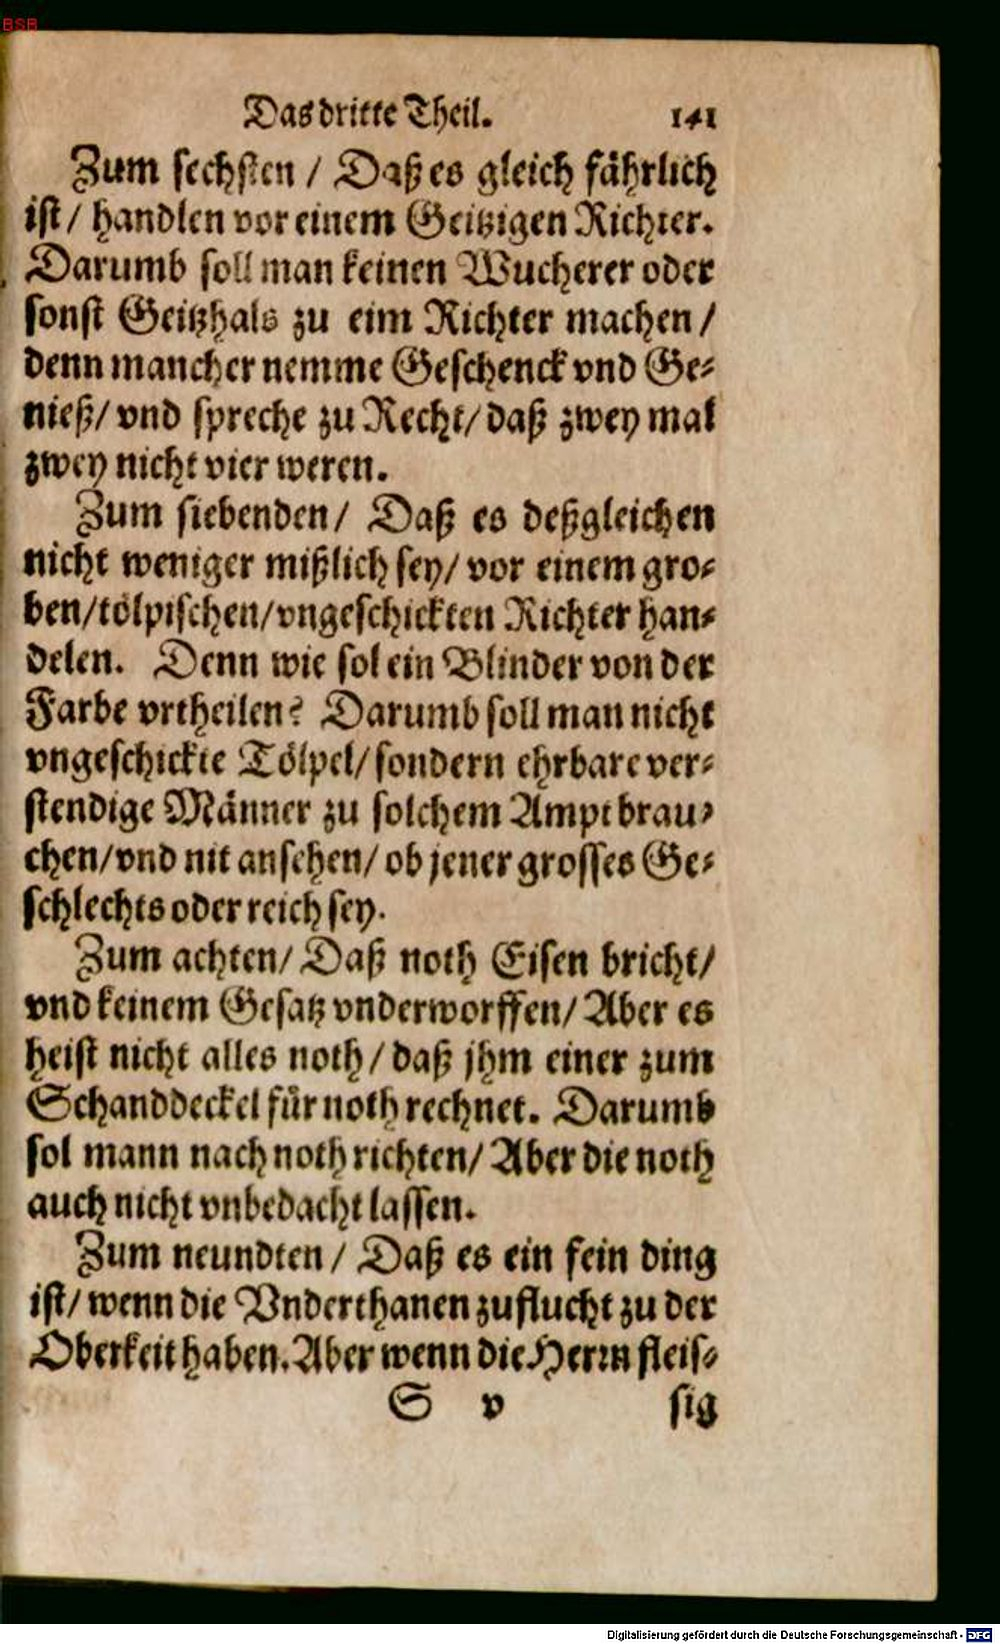 BSB
Das dritte Theil. 141
Zum sechsten / Daß es gleich fährlich
ist / handlen vor einem Geitzigen Richter.
Darumb soll man keinen Wucherer oder
sonst Geitzhals zu eim Richter machen /
denn mancher nemme Geschenck vnd Ge-
nieß / vnd spreche zu Recht / daß zwey mal
zwey nicht vier weren.
Zum siebenden / Daß es deßgleichen
nicht weniger mißlich sey / vor einem gro-
ben / tölpischen / vngeschickten Richter han-
delen. Denn wie sol ein Blinder von der
Farbe vrtheilen? Darumb soll man nicht
vngeschickte Tölpel / sondern ehrbare ver-
stendige Männer zu solchem Ampt brau-
chen / vnd nit ansehen / ob jener grosses Ge-
schlechts oder reich sey.
Zum achten / Daß noth Eisen bricht /
vnd keinem Gesatz vnderworffen / Aber es
heist nicht alles noth / daß jhm einer zum
Schanddeckel für noth rechnet. Darumb
sol mann nach noth richten / Aber die noth
auch nicht vnbedacht lassen.
Zum neundten / Daß es ein fein ding
ist / wenn die Vnderthanen zuflucht zu der
Oberkeit haben. Aber wenn die Herrn fleis-
S v sig
Digitalisierung gefördert durch die Deutsche Forschungsgemeinschaft - DFG